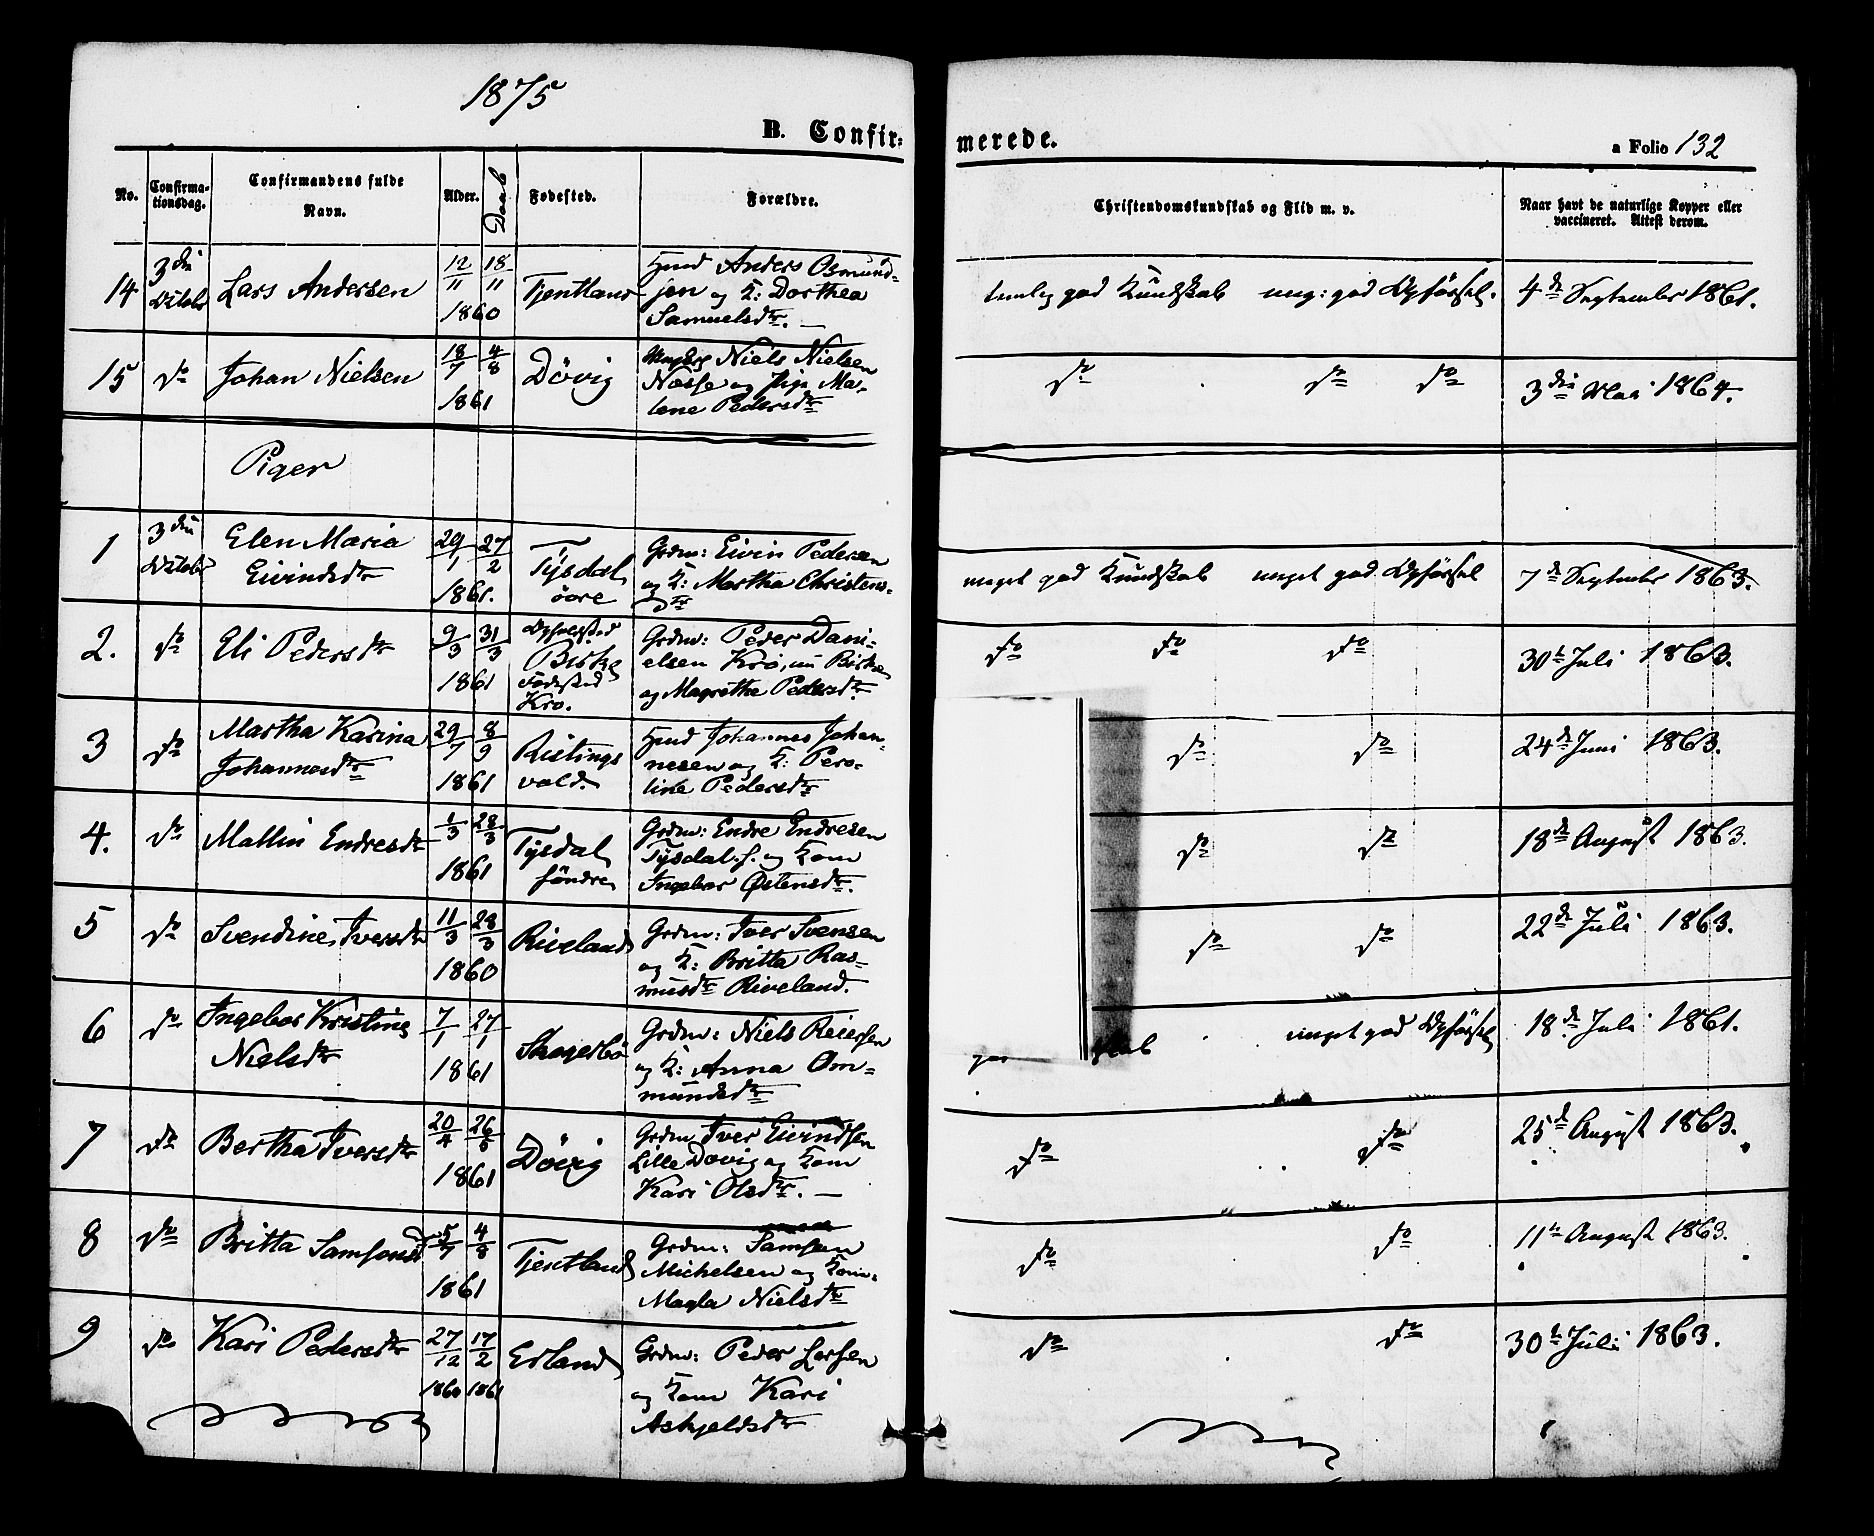 1875
B. Confirmerede.
a Folio 132
No.
Confirmationsdag.
Confirmandens fulde Navn.
Alder.
Daab
Fødested.
Forældre.
Christendomskundskab og Flid m. v.
Naar havt de naturlige Kopper eller vaccineret. Attest derom.
14
3die Octobr
Lars Andersen
12/11 18/11 1860
Tjentland
Hmd Anders Osmund-
sen og K: Dorthea
Samuelsdtr. —
temlig god Kundskab meg: god Opførsel.
4de September 1861.
15
do
Johan Nielsen
18/7 4/8 1861
Dövig
Niels Nielsen
Næsse og Pige Ma-
lene Pedersdtr
do do do
3die Mai 1864.
Piger
1
3die Octobr
Elen Maria
Eivindsdtr
29/1 27/2 1861.
Tysdal
övre
Grdm: Eivin Pedersen
og K: Martha Christens-
dtr
meget god Kundskab meget god Opførsel
7de September 1863.
2.
do
Eli Pedersdtr
9/3 31/3 1861
Opholdssted
Birke
Födested
Krö.
Grdm: Peder Dani-
elsen Krö, nu Birke
og Magrethe Pedersdtr.
do do do
30te Juli 1863.
3
do
Martha Karina
Johannesdtr
29/7 8/9 1861
Ristings
vold.
Hmd Johannes Johan-
nesen og K: Pero-
line Pedersdtr
do do
24de Juni 1863.
4.
do
Mallin Endresdtr
1/3 28/3 1861
Tysdal
söndre
Grdm: Endre Endresen
Tysdal s. og Kone
Ingebor Østensdtr.
do do
18de August 1863.
5
do
Svendine Iversdtr
11/3 28/3 1860
Riveland
Grdm: Iver Svensen
og K: Britta Ras-
musdtr Riveland.
do do
22de Juli 1863.
6
do
Ingebor Kristine
Nielsdtr
7/1 27/1 1861
Skogerbö
Grdm: Niels Reiersen
og K: Anna Om-
mundsdtr
skab meget god Opførsel
18de Juli 1861.
7
do
Bertha Iversdtr
20/4 26/5 1861
Dövig
Grdm Iver Eivindsen
Lille Dövig og Kone
Kari Olsdtr. —
do do
25de August 1863.
8
do
Britta Samsonsd
5/7 4/8 1861
Tjentland
Grdm: Samson
Michelsen og Kone
Magla Nielsdtr
do do
11te August 1863.
9
do
Kari Pedersdtr
27/12 1860 17/2 1861
Erland
Grdm: Peder Larsen
og Kone Kari
Askjeldsdtr
do do
30te Juli 1863.